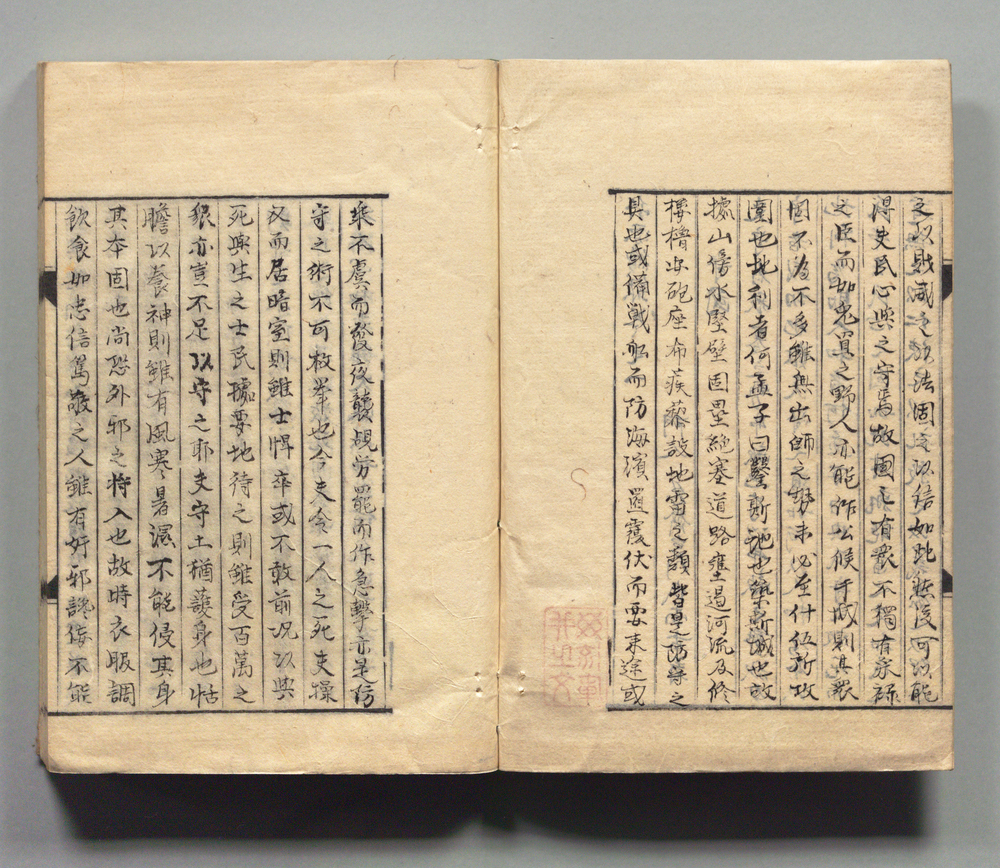 之以財減之於法固之以信如此然後可以能
得吏民心與之守焉故國之有衆不獨有宋祿
之臣而如兔罝之野人亦能作公候干城則其衆
固不為不多雖無出師之勢未必至什伍所攻
圍也地利者何孟子曰鑿斯池也築斯城也故
據山傍水堅壁固壘絕塞道路壅土遏河流及修
樓櫓出砲座布蒺藜設地雷之類皆是防守之
具也或備戰船而防海濱置覆伏而要來途或
乘不虞而發夜襲覘労罷而作急擊亦是防
守之術不可枚擧也今夫令一人之死士操
刄而居暗室則雖士悍卒或不敢前况以與
死與生之士民據要地待之則雖受百萬之
貔亦豈不足以守之耶夫守土猶護身也恬
膽以養神則雖有風寒暑濕不能侵其身
其本固也尚恐外邪之將入也故時衣服調
飲食如忠信篤敬之人雖有奸邪讒侫不能